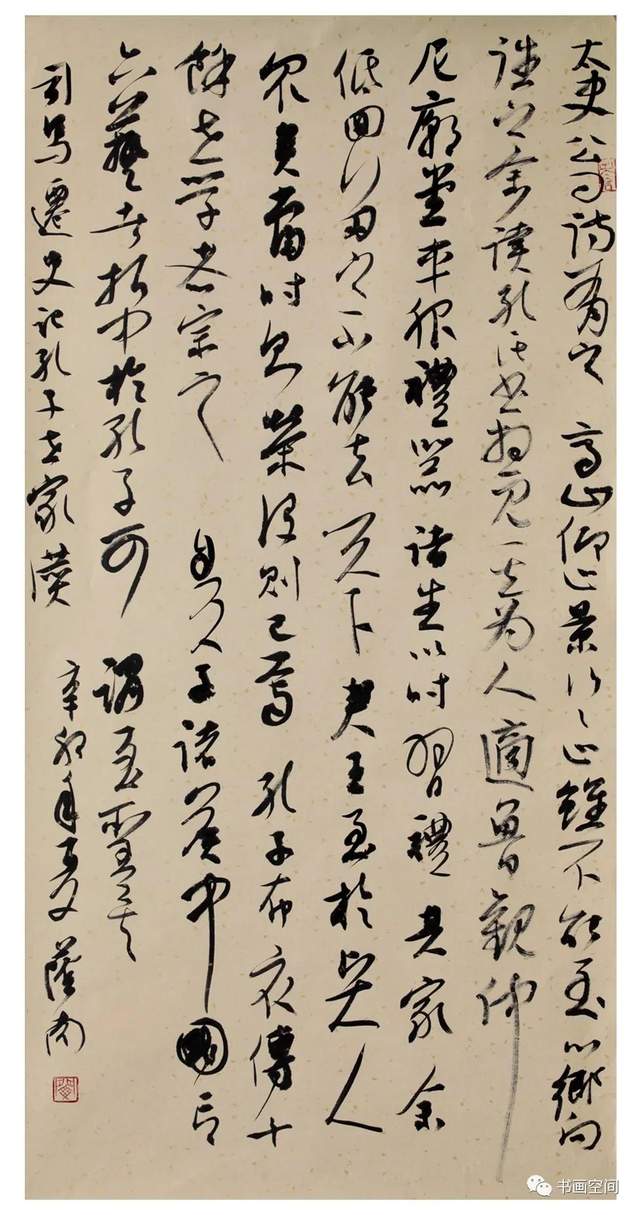 太史公曰詩有之高山仰止景行々止雖不能至心鄉向
往之余讀孔氏書想見其為人適魯觀仲
尼廟堂車服禮器諸生以時習禮其家余
低回留之不能去天下君王至於賢人
眾矣當時則榮沒則已焉孔子布衣傳十
餘世學者宗之自天子諸侯中國言
六藝者折中於孔子可謂至聖矣
司馬遷史記孔子世家讚
辛卯年夏蔭南
书画空间